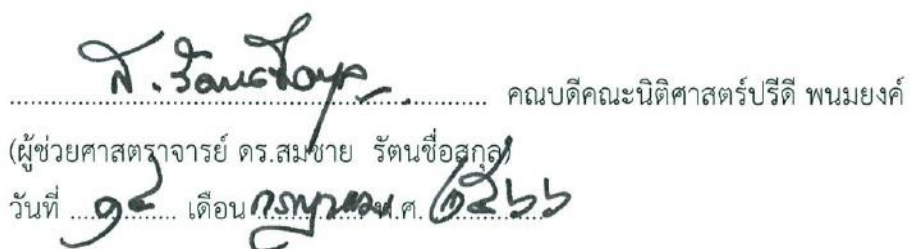 ส. รัตนชื่อสกุล คณบดีคณะนิติศาสตร์ปรีดี พนมยงค์
(ผู้ช่วยศาสตราจารย์ ดร.สมชาย รัตนชื่อสกุล)
วันที่ ๑๔ เดือน กรกฎาคม พ.ศ. ๒๕๖๖